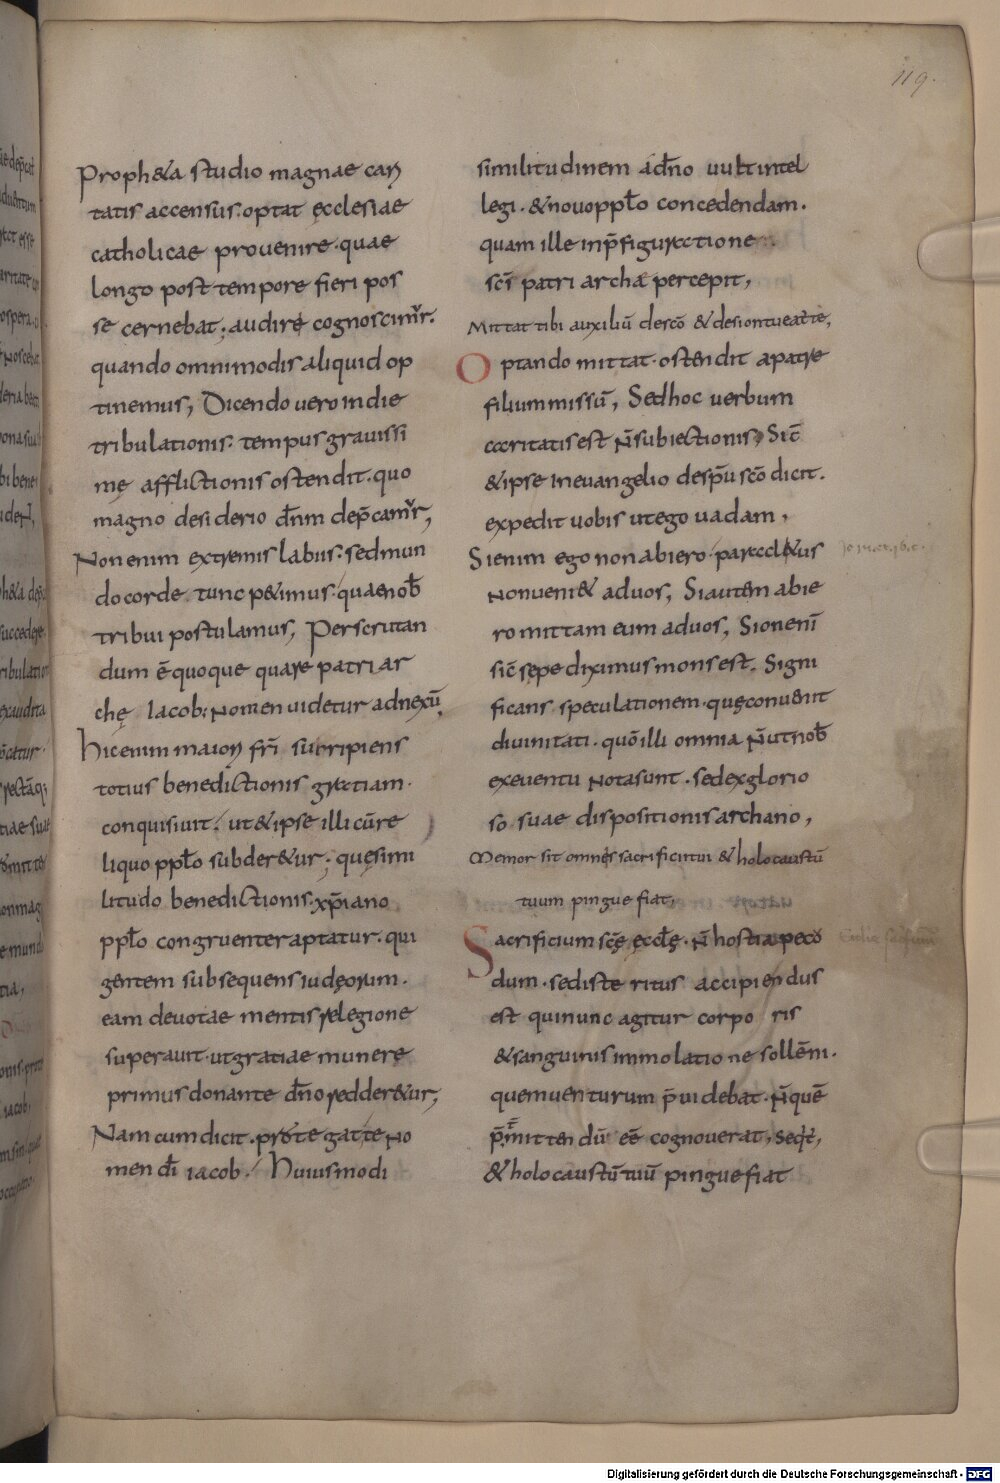 119.
Proph&a studio magnae cari
tatis accensus. optat ęcclesiae
catholicae prouenire. quae
longo post tempore fieri pos
se cernebat; audire cognoscimur.
quando omnimodis aliquid op
tinemus, Dicendo uero in die
tribulationis. tempus grauissi
mę afflictionis ostendit. quo
magno desiderio dn̄m dep̄camur,
Non enim extremis labiis. sed mun
do corde tunc p&imus. quae nob̄
tribui postulamus, Perscrutan
dum ē quoque quare patriar
chę Iacob; Nomen uidetur adnexū,
Hic enim maiori fr̄i surripiens
totius benedictionis gratiam.
conquisiuit. ut & ipse illi cūre
liquo ppło subder&ur; quę simi
litudo benedictionis. xp̄iano
ppło congruenter aptatur. qui
gentem subsequens iudęorum.
eam deuotae mentis relegione
superauit. ut gratiae munere
primus donante dn̄o redder&ur,
Nam cum dicit. protegat te No
men dī iacob. Huiusmodi
similitudinem ad dn̄o uult intel
legi. & nouo ppło concedendam.
quam ille in p̄figuratione
scī patriarcha percepit,
Mittat tibi auxiliū de scō & de sion tueatur te,
Optando mittat. ostendit a patre
filium missū, Sed hoc uerbum
caritatis est n̄ subiectionis, Sic̄
& ipse in euangelio de sp̄u scō dicit.
expedit uobis ut ego uadam,
Si enim ego non abiero. paracl&us
non ueni& ad uos, Si autem abie
ro mittam eum ad uos, Sion enī
sic̄ sepe diximus mons est. Signi
ficans speculationem. quę conuenit
diuinitati. quō illi omnia n̄ ut nob̄
ex euentu nota sunt. sed ex glorio
so suae dispositionis archano,
Memor sit omnes sacrificii tui & holocaustū
tuum pingue fiat,
Sacrificium scę ęccłę. n̄ hostia peco
dum. sed iste ritus accipiendus
est qui nunc agitur corporis
& sanguinis immolatione sollēm.
quem uenturum p̄uidebat. n̄ quē
p̄mittendū eē cognouerat, seqr̄,
& holocaustū tuū pingue fiat
Digitalisierung gefördert durch die Deutsche Forschungsgemeinschaft - DFG